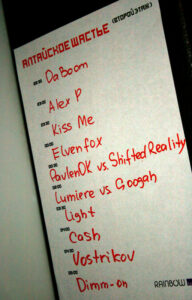 АЛТАЙСКОЕ ЩАСТЬЕ (ВТОРОЙ ЭТАЖ)
DaBoom
Alex P
Kiss Me
Elvenfox
PavlenOK vs. Shifted Reality
Lumiere vs. Googah
Light
Cash
Vostrikov
Dimm-on
RAINBOW